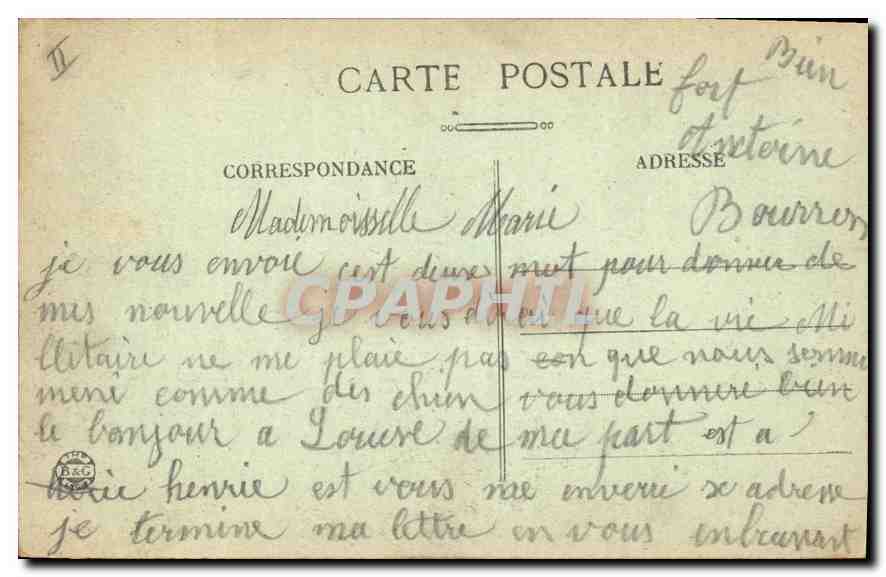 II
CARTE POSTALE
CORRESPONDANCE
ADRESSE
Bien
fort
Antoine
Bourron
Mademoisselle Marie
je vous envoie cest deuse mot pour donner de
mes nouvelle je vous di que la vie Mi
llitaire ne me plaie pas que nous somme
mené comme des chien vous donneré bien
le bonjour a Louise de ma part est a
henrie est vous me enverré se adresse
je termine ma lettre en vous enbrasant
CPAPHIL
B&G